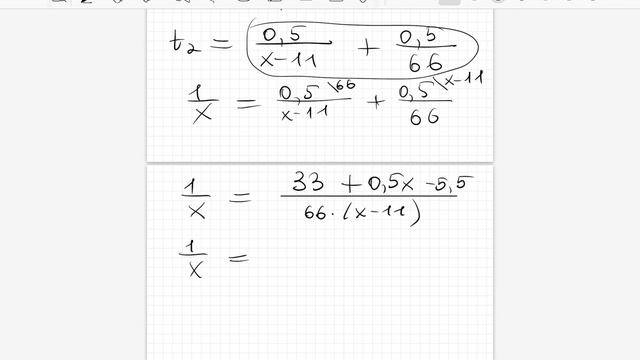 t₂ = 0,5/(x-11) + 0,5/66
1/x = 0,5\66/(x-11) + 0,5\x-11/66
1/x = (33 + 0,5x - 5,5)/(66·(x-11))
1/x =